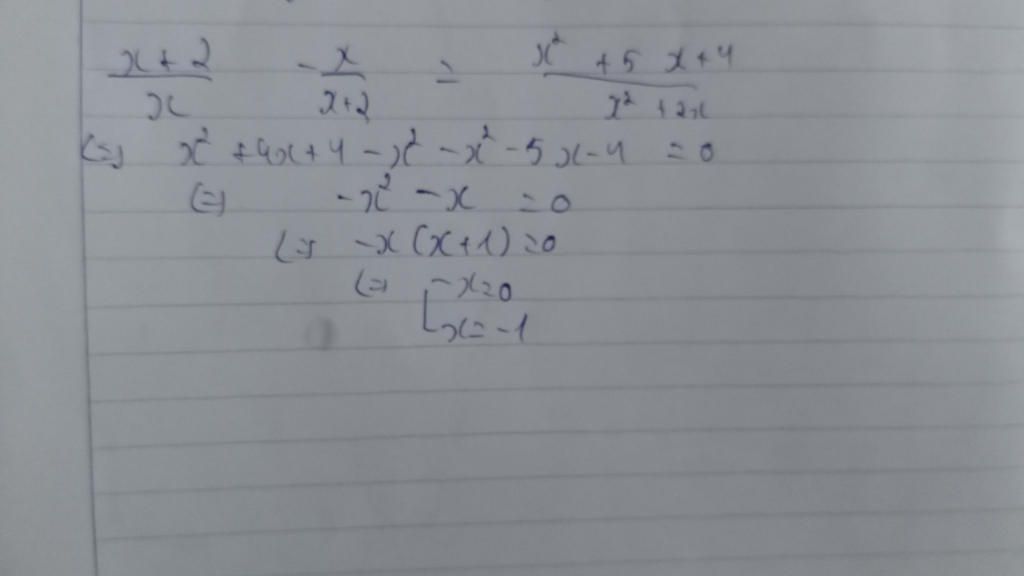 (x+2)/x - x/(x+2) = (x² + 5x + 4)/(x² + 2x)
(=) x² + 4x + 4 - x² - x² - 5x - 4 = 0
(=) -x² - x = 0
(=) -x (x+1) = 0
(=) [ -x = 0
x = -1